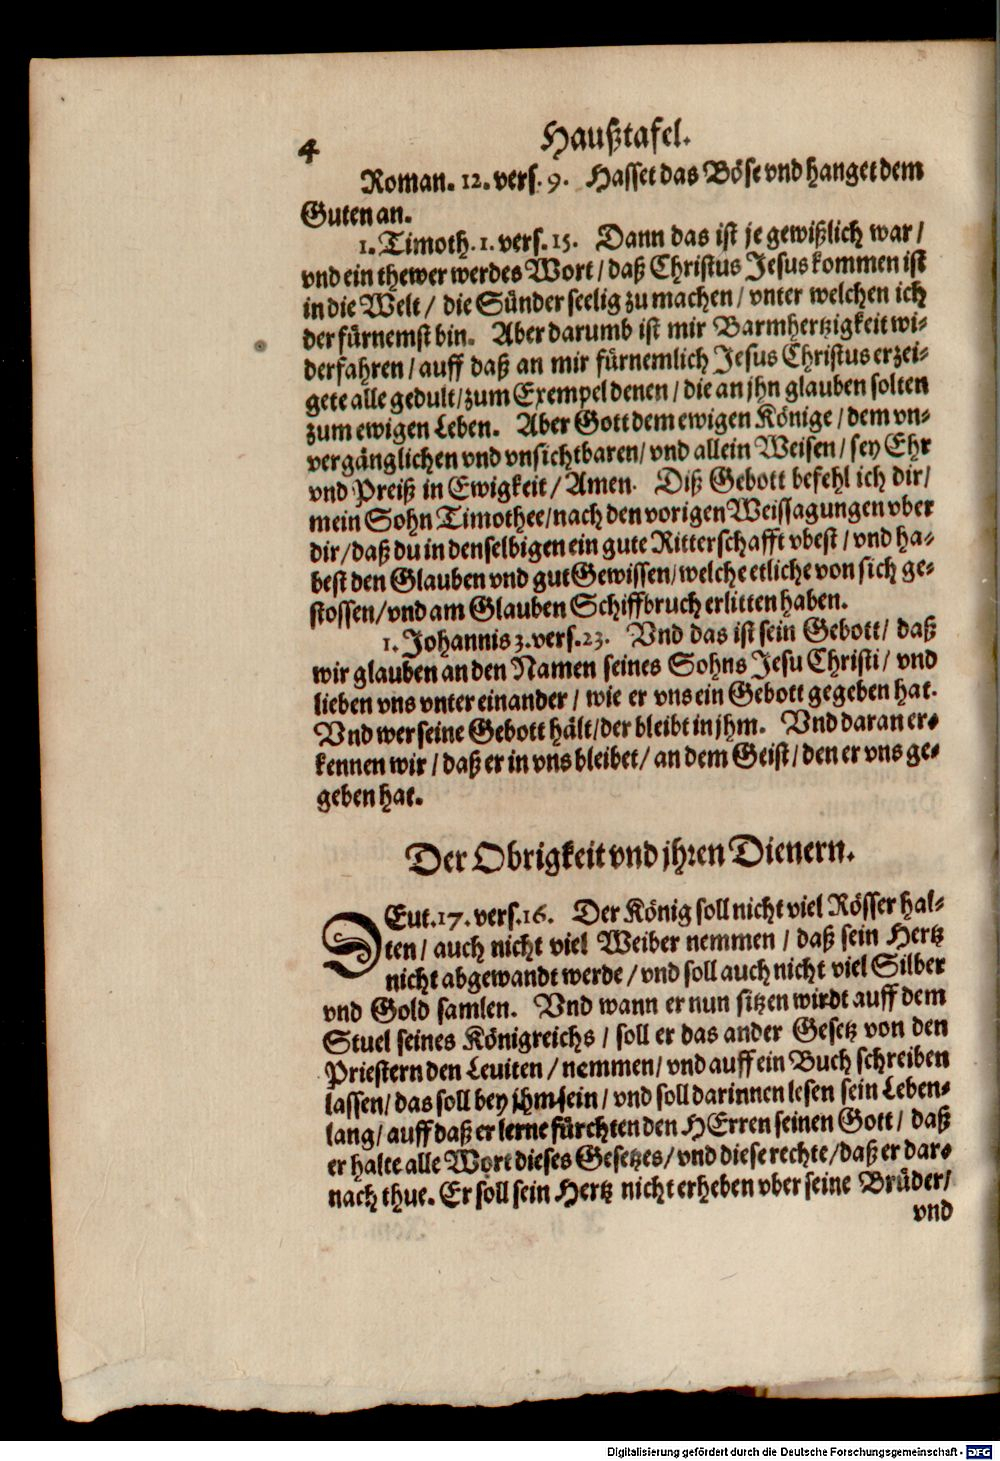 4
Haußtafel.
Roman. 12. vers. 9. Hasset das Böse vnd hanget dem
Guten an.
1. Timoth. 1. vers. 15. Dann das ist je gewißlich war /
vnd ein thewer werdes Wort / daß Christus Jesus kommen ist
in die Welt / die Sünder seelig zu machen / vnter welchen ich
der fürnemst bin. Aber darumb ist mir Barmhertzigkeit wi-
derfahren / auff daß an mir fürnemlich Jesus Christus erzei-
gete alle gedult / zum Exempel denen / die an jhn glauben solten
zum ewigen Leben. Aber Gott dem ewigen Könige / dem vn-
vergänglichen vnd vnsichtbaren / vnd allein Weisen / sey Ehr
vnd Preiß in Ewigkeit / Amen. Diß Gebott befehl ich dir /
mein Sohn Timothee / nach den vorigen Weissagungen vber
dir / daß du in denselbigen ein gute Ritterschafft vbest / vnd ha-
best den Glauben vnd gut Gewissen / welche etliche von sich ge-
stossen / vnd am Glauben Schiffbruch erlitten haben.
1. Johannis 3. vers. 23. Vnd das ist sein Gebott / daß
wir glauben an den Namen seines Sohns Jesu Christi / vnd
lieben vns vnter einander / wie er vns ein Gebott gegeben hat.
Vnd wer seine Gebott hält / der bleibt in jhm. Vnd daran er-
kennen wir / daß er in vns bleibet / an dem Geist / den er vns ge-
geben hat.
Der Obrigkeit vnd jhren Dienern.
DEut. 17. vers. 16. Der König soll nicht viel Rösser hal-
ten / auch nicht viel Weiber nemmen / daß sein Hertz
nicht abgewandt werde / vnd soll auch nicht viel Silber
vnd Gold samlen. Vnd wann er nun sitzen wirdt auff dem
Stuel seines Königreichs / soll er das ander Gesetz von den
Priestern den Leuiten / nemmen / vnd auff ein Buch schreiben
lassen / das soll bey jhm sein / vnd soll darinnen lesen sein Leben-
lang / auff daß er lerne fürchten den HErren seinen Gott / daß
er halte alle Wort dieses Gesetzes / vnd diese rechte / daß er dar-
nach thue. Er soll sein Hertz nicht erheben vber seine Brüder /
vnd
Digitalisierung gefördert durch die Deutsche Forschungsgemeinschaft - DFG